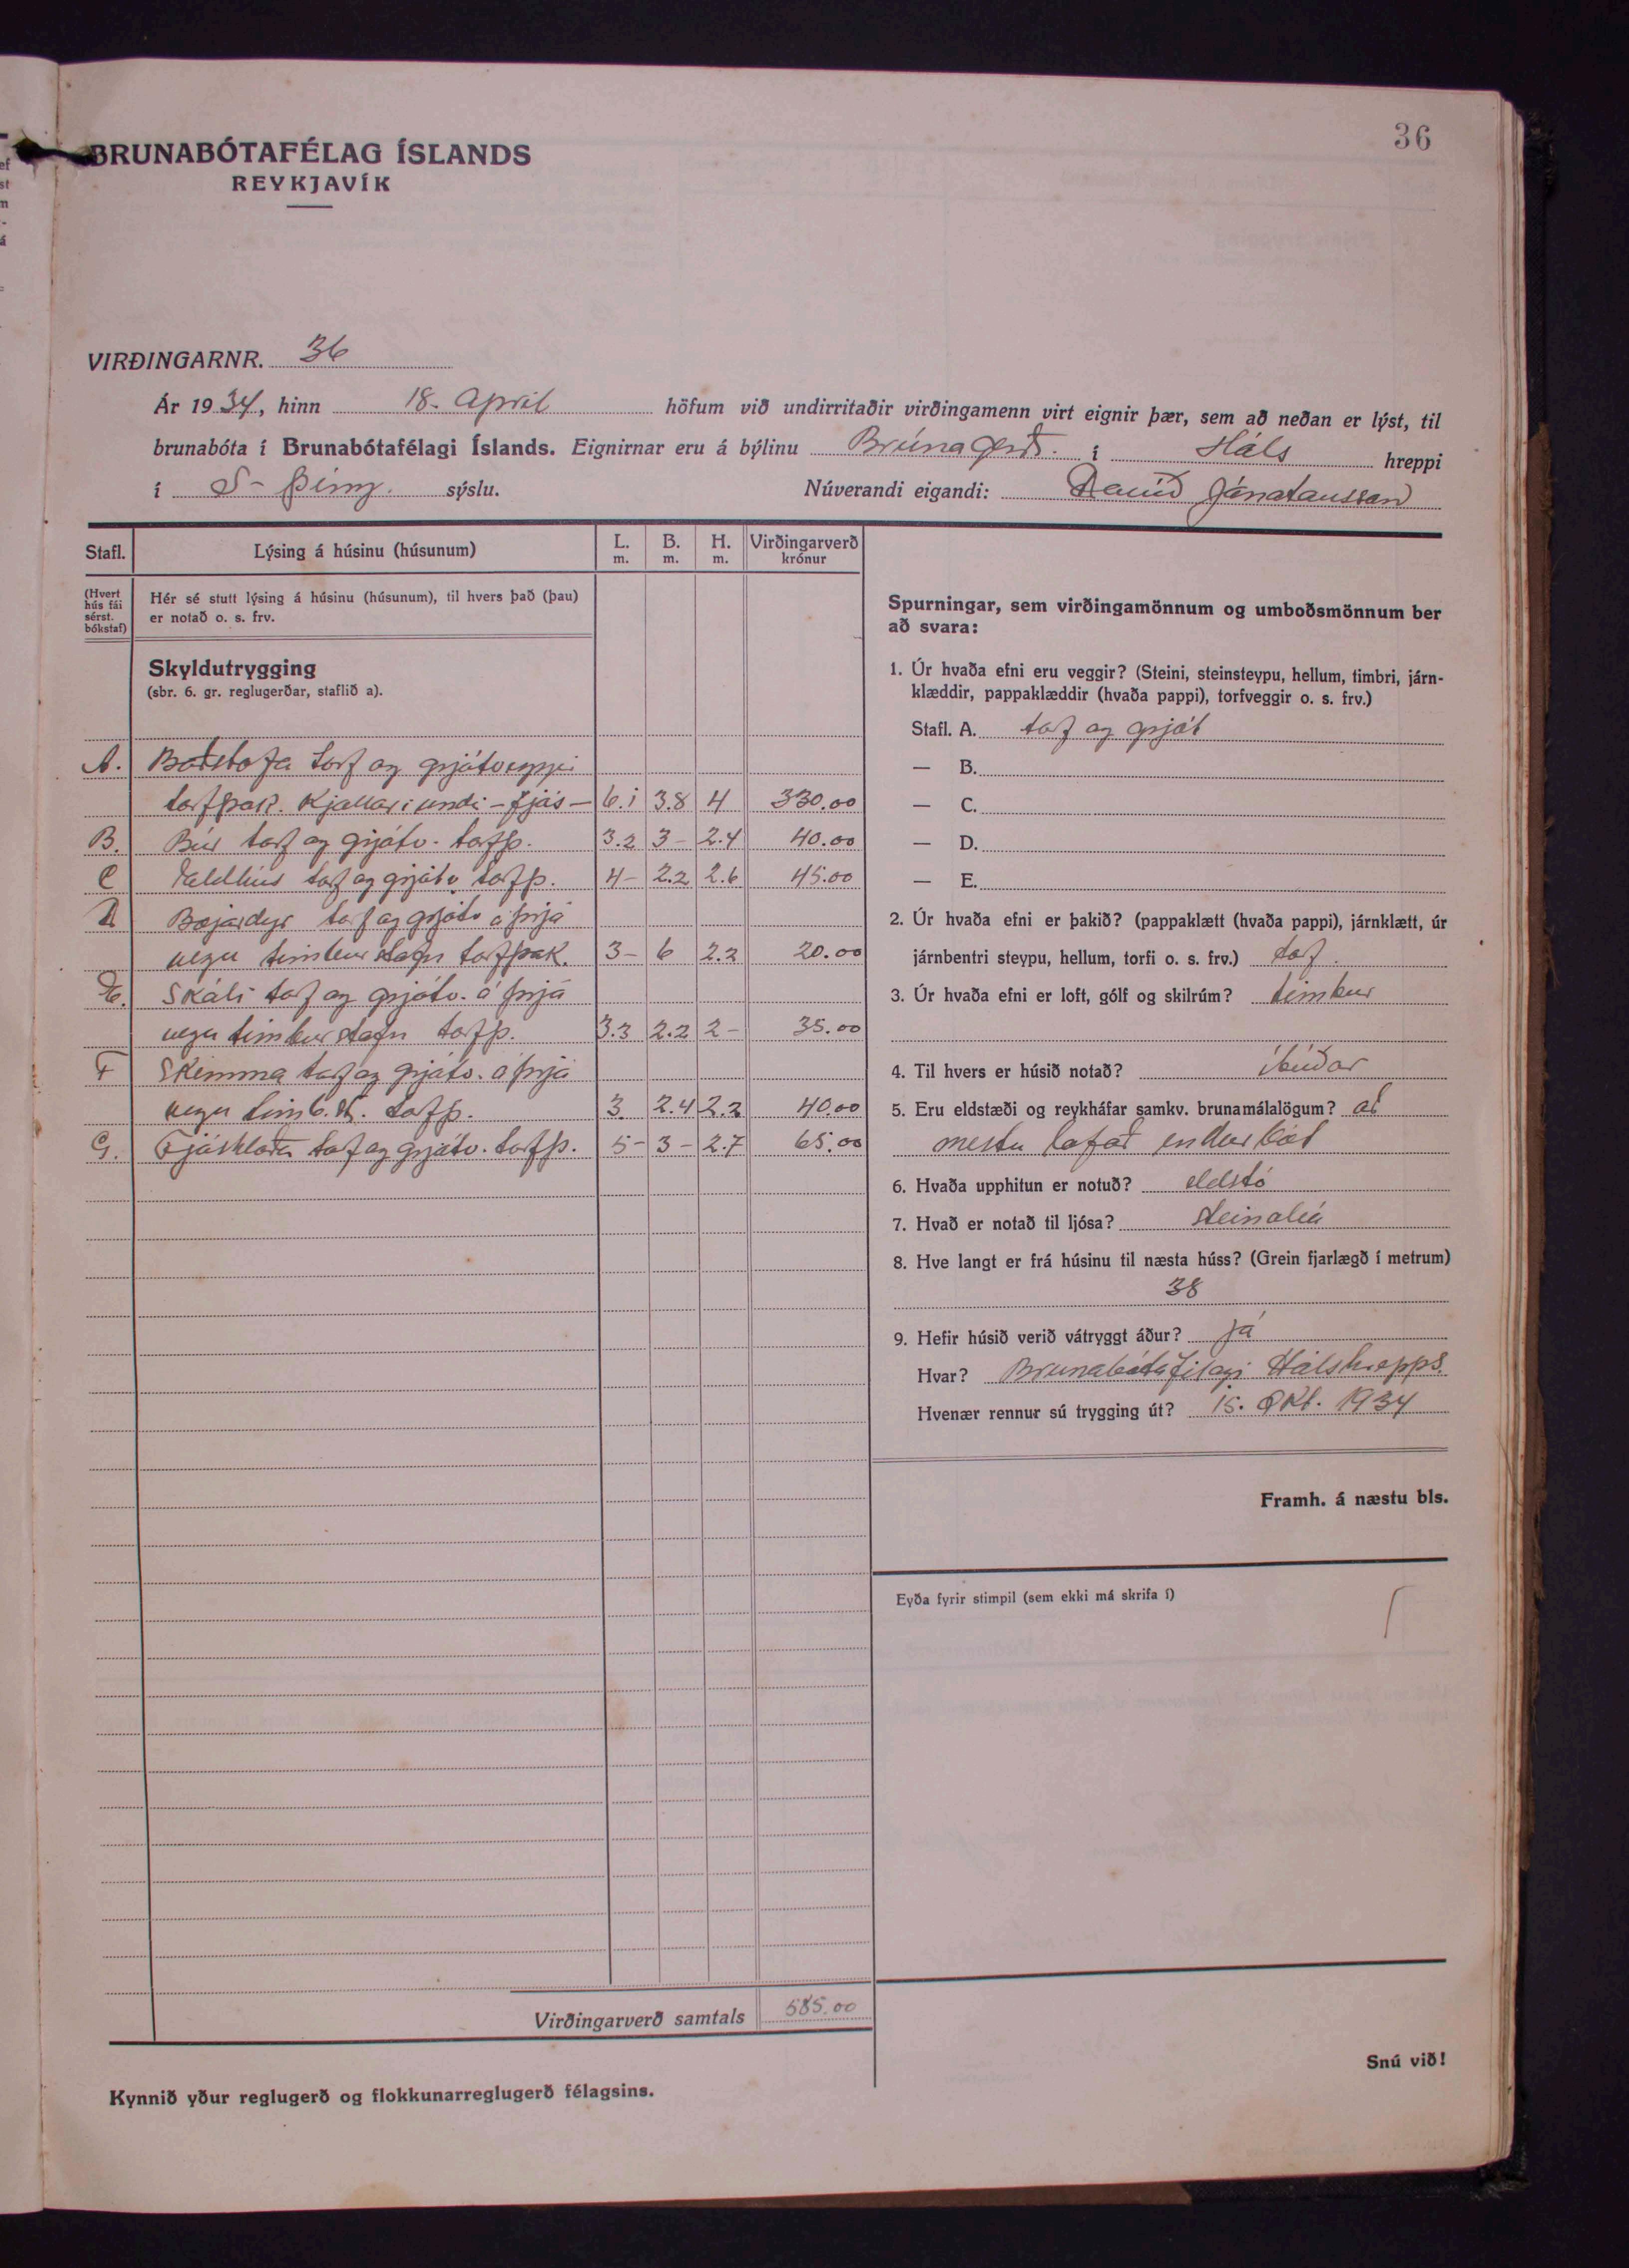 36
BRUNABÓTAFÉLAG ÍSLANDS
REYKJAVÍK
VIRÐINGARNR. 36
Ár 1934, hinn 18. April höfum við undirritaðir virðingamenn virt eignir þær, sem að neðan er lýst, til
brunabóta í Brunabótafélagi Íslands. Eignirnar eru á býlinu Brúnagerð. í Háls hreppi
í S-Þing. sýslu. Núverandi eigandi: Davíð Jónatansson
Stafl. Lýsing á húsinu (húsunum) L. m. B. m. H. m. Virðingarverð krónur
(Hvert hús fái sérst. bókstaf)
Hér sé stutt lýsing á húsinu (húsunum), til hvers það (þau)
er notað o. s. frv.
Skyldutrygging
(sbr. 6. gr. reglugerðar, staflið a).
A. Baðstofa torf og grjótveggi
torfþak. Kjallari undi - fjós - 6.1 3.8 4 330.00
B. Búr torf og grjótv. torfþ. 3.2 3- 2.4 40.00
C Eldhús torf og grjótv. torfþ. 4- 2.2 2.6 45.00
D Bæjardyr torf og grjótv á þrjá
vegu timburstafn torfþak. 3- 6 2.2 20.00
E. Skáli torf og grjótv. á þrjá
vegu timburstafn torfþ. 3.3 2.2 2- 35.00
F Skemma torf og grjótv. á þrjá
vegu timb. st. torfþ. 3. 2.4 2.2 40.00
G. Fjóshlaða torf og grjótv. torfþ. 5- 3- 2.7 65.00
Virðingarverð samtals 585.00
Kynnið yður reglugerð og flokkunarreglugerð félagsins.
Spurningar, sem virðingamönnum og umboðsmönnum ber
að svara:
1. Úr hvaða efni eru veggir? (Steini, steinsteypu, hellum, timbri, járn-
klæddir, pappaklæddir (hvaða pappi), torfveggir o. s. frv.)
Stafl. A. torf og grjót
— B.
— C.
— D.
— E.
2. Úr hvaða efni er þakið? (pappaklætt (hvaða pappi), járnklætt, úr
járnbentri steypu, hellum, torfi o. s. frv.) torf.
3. Úr hvaða efni er loft, gólf og skilrúm? timbur
4. Til hvers er húsið notað? íbúðar
5. Eru eldstæði og reykháfar samkv. brunamálalögum? að
mestu lofað endurbót
6. Hvaða upphitun er notuð? eldstó
7. Hvað er notað til ljósa? steinolía
8. Hve langt er frá húsinu til næsta húss? (Grein fjarlægð í metrum)
38
9. Hefir húsið verið vátryggt áður? Já
Hvar? Brunabótafélagi Hálshrepps
Hvenær rennur sú trygging út? 15. Okt. 1934
Framh. á næstu bls.
Eyða fyrir stimpil (sem ekki má skrifa í)
Snú við!